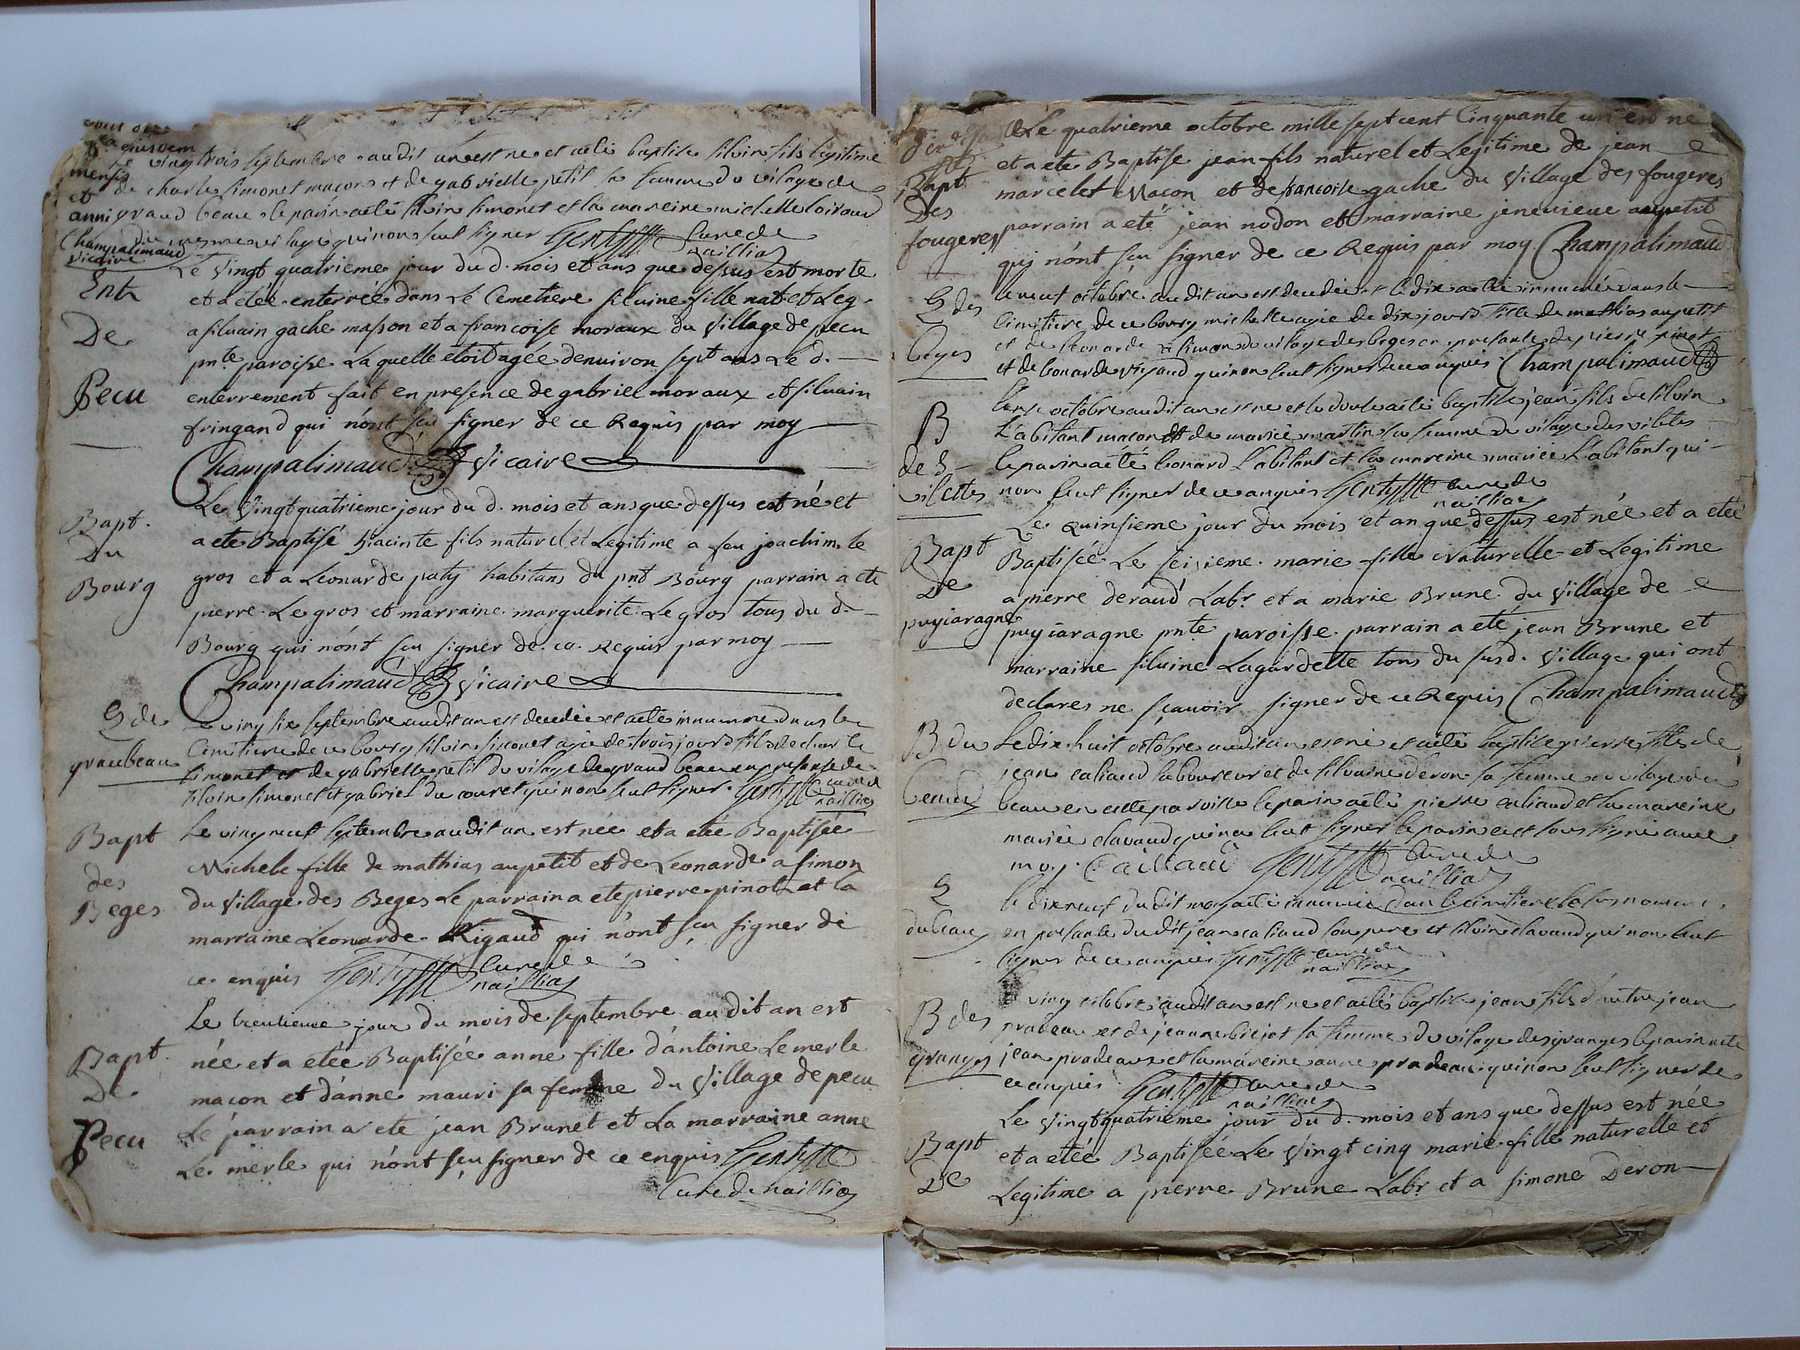 Le vingtrois septembre audit an est né et aété baptisé silvin fils légitime
de charle simonet maçon et de gabrielle petit sa femme du vilage de
grand beau le parin aété silvin simonet et la mareine michelle loiraud
du mesme vilage qui non seut signer Gentysse Curé de
naillia
ejusdem
mensis
et
anni
Champalimaud
vicaire
Entr
De
Pecu
Le Vingt quatrieme jour du d. mois et ans que dessus est morte
et a étée enterrée dans Le Cemetiere silvine fille nat. et Leg.
a silvain gache masson et a francoise moraux du Village de pecu
pnte paroisse Laquelle etoit agée denviron sept ans Le d.
enterrement fait en presence de gabriel moraux et silvain
fringand qui n'ont sçu signer de ce Requis par moy
Champalimaud Vicaire
Bapt.
Du
Bourg
Le Vingt quatrieme jour du d. mois et ans que dessus est né et
a ete Baptisé hiacinte fils naturel et Legitime a feu joachim le
gros et a Leonarde paty habitans du pnt Bourg parrain a ete
pierre Le gros et marraine marguerite Le gros tous du d.
Bourg qui n'ont sçu signer de ce Requis par moy
Champalimaud Vicaire
S de
graubeau
Le ving six septembre audit an est decedée et aété innumé dans le
Cimitiere de ce bourg silvin simonet agée de trois jours fils de charle
simonet et de gabrielle petit du vilage de grand beau en presense de
silvin simonet et gabriel du couret qui non seut signer Gentysse curé de
naillia
Bapt
des
Beges
Le ving neuf septembre audit an est née et a eté Baptisée
Michele fille de mathias aupetit et de Leonarde a simon
du Village des Beges Le parrain a ete pierre pinot et la
marraine Leonarde Rigaud qui n'ont sçu signer de
ce enquis Gentysse Curé de
naillia
Bapt.
De
Pecu
Le trentieme jour du mois de septembre audit an est
née et a etée Baptisée anne fille d'antoine Lemerle
macon et d'anne mauri sa femme du Village de pecu
Le parrain a ete jean Brunet et La marraine anne
Le merle qui n'ont sçu signer de ce enquis Gentysse
Curé de naillia
Bapt.
Des
fougeres
Le quatrieme octobre mille sept cent Cinquante un est né
et a ete Baptisé jean fils naturel et Legitime de jean
marcelet Macon et de francoise gache du Village des fougeres
parrain a eté jean nodon et marraine jenevieve aupetit
qui n'ont sçu signer de ce Requis par moy Champalimaud
S des
Beges
Le neuf octobre audit an est decedée et le dix aété innumée dans le
Cimitiere de ce bourg michelle agée de dix jours fille de mathias aupetit
et de leonarde simon du vilage des beges en presance de pierre pinot
et de leonarde rigaud qui non seut signer de ce anquis Champalimaud
B
des
vilettes
Lonse octobre audit an est né et le douse aété baptisé jean fils de silvin
L'abitant macon et de mariee martin sa femme du vilage des viletes
le parin aété leonard L'abitant et la mareine mariee L'abitant qui
non seut signer de ce anquis Gentysse curé de
naillia
Bapt
De
puyiaragne
Le quinsieme jour du mois et an que dessus est née et a etée
Baptisée Le seisieme marie fille naturelle et Legitime
a pierre deraud Labr. et a marie Brune du Village de
puyiaragne pnte paroisse parrain a eté jean Brune et
marraine silvine Lagardette tous du susd. Village qui ont
declares ne sçavoir signer de ce Requis Champalimaud
B du
Le dix huit octobre audit an est né et aété baptisé pierre fils de
jean caliaud laboureur et de silvaine deron sa femme du vilage du
beau en cette paroisse le parin aété pierre caliaud et la mareine
mariée clavaud qui ne seut signer le parin cest sous signé avec
moy Caillaud Gentysse Curé de
naillia
S
du beau
le dixneuf dudit moy aété innumé dans le cimitiere le susnommé
en presance du dit jean caliaud son pere et silvin clavaud qui non seut
signer de ce anquis Gentysse curé de
naillia
B des
granges
Le ving octobre audit an est né et aété baptisé jean fils d'autre jean
pradeau et de jeanne sa femme du vilage des granges le parin aété
jean pradeaux et la mareine anne pradeau qui non seut signer de
ce anquis Gentysse curé de
naillia
Bapt
De
Le Vingt quatrieme jour du d. mois et ans que dessus est née
et a etée Baptisée Le Vingt cinq marie fille naturelle et
Legitime a pierre Brune Labr. et a simone Deron